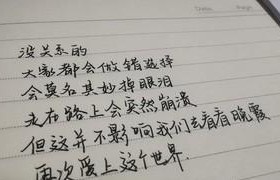 没关系的
大家都会做错选择
会莫名其妙掉眼泪
走在路上会突然崩溃
但这并不影响我们去看看晚霞
再次爱上这个世界.